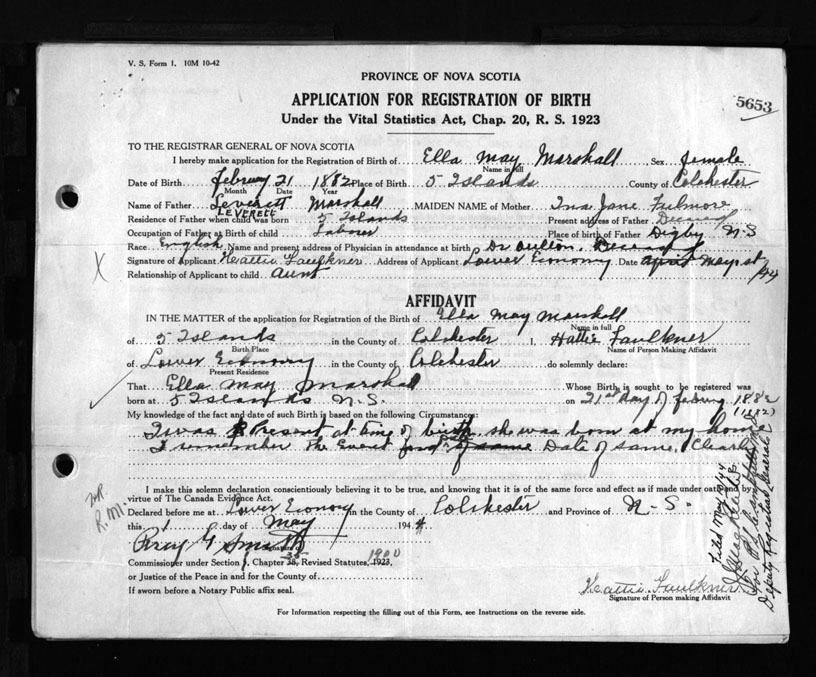 V. S. Form 1. 10M 10-42
PROVINCE OF NOVA SCOTIA
5653
APPLICATION FOR REGISTRATION OF BIRTH
Under the Vital Statistics Act, Chap. 20, R. S. 1923
TO THE REGISTRAR GENERAL OF NOVA SCOTIA
I hereby make application for the Registration of Birth of Ella May Marshall Sex female
Name in full
Date of Birth February 21 1882 Place of Birth 5 Islands County of Colchester
Month Date Year
Name of Father Leverett Marshall MAIDEN NAME of Mother Ina Jane Fulmore
LEVERETT
Residence of Father when child was born 5 Islands Present address of Father Deceased
Occupation of Father at Birth of child Labourer Place of birth of Father Digby N.S
Race English Name and present address of Physician in attendance at birth Dr Deceased
Signature of Applicant Hattie Faulkner Address of Applicant Lower Economy Date April May 1st /44
Relationship of Applicant to child aunt
X
AFFIDAVIT
IN THE MATTER of the application for Registration of the Birth of Ella May Marshall
Name in full
of 5 Islands in the County of Colchester I, Hattie Faulkner
Birth Place Name of Person Making Affidavit
of Lower Economy in the County of Colchester do solemnly declare:
Present Residence
That Ella May Marshall Whose Birth is sought to be registered was
born at 5 Islands N.S. on 21st day of febury 1882
(1882)
My knowledge of the fact and date of such Birth is based on the following Circumstances:
I was Present at time of birth, she was born at my home
I remember The Event and of same Date of same, Clearly
I make this solemn declaration conscientiously believing it to be true, and knowing that it is of the same force and effect as if made under oath and by
virtue of The Canada Evidence Act.
R.M.
Declared before me at Lower Economy in the County of Colchester and Province of N.S.
this 1 day of May 1944
Percy G Smith
Signature of
Commissioner under Section 8, Chapter 38, Revised Statutes, 1923,
35 1900
or Justice of the Peace in and for the County of
If sworn before a Notary Public affix seal.
Hattie Faulkner
Signature of Person making Affidavit
Filed May 3/44
Deputy Registrar General
For Information respecting the filling out of this Form, see Instructions on the reverse side.